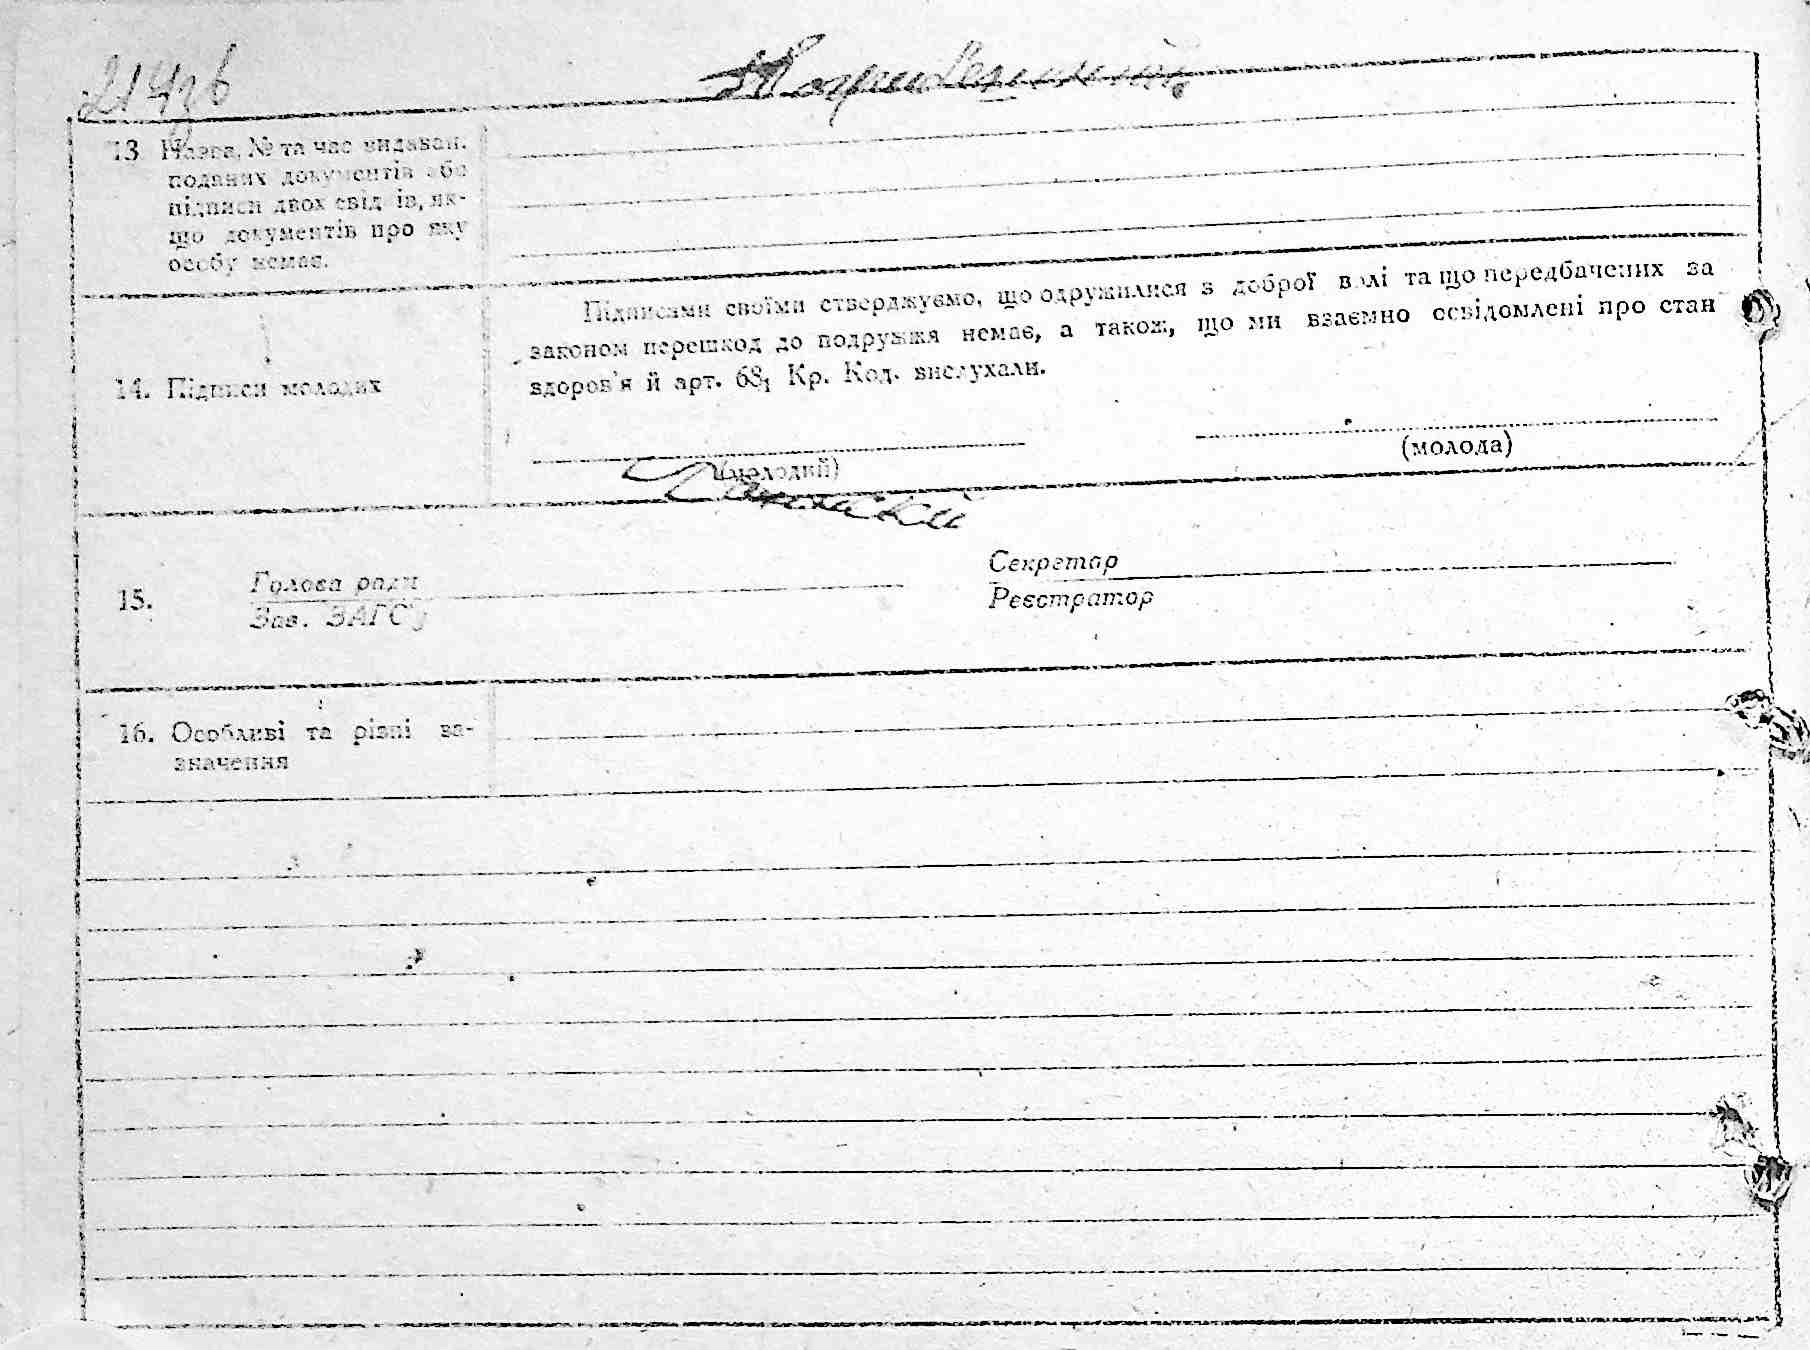 13 Назва, № та час видаван.
поданих документів або
підписи двох свідків, як-
що документів про яку
особу немає.
Підписами своїми стверджуємо, що одружилися з доброї волі та що передбачених за
законом перешкод до подружжя немає, а також, що ми взаємно освідомлені про стан
здоров'я й арт. 68₁ Кр. Код. вислухали.
14. Підписи молодих
(молодий)
(молода)
15.
Голова ради
Зав. ЗАГСу
Секретар
Реєстратор
16. Особливі та різні за-
значення